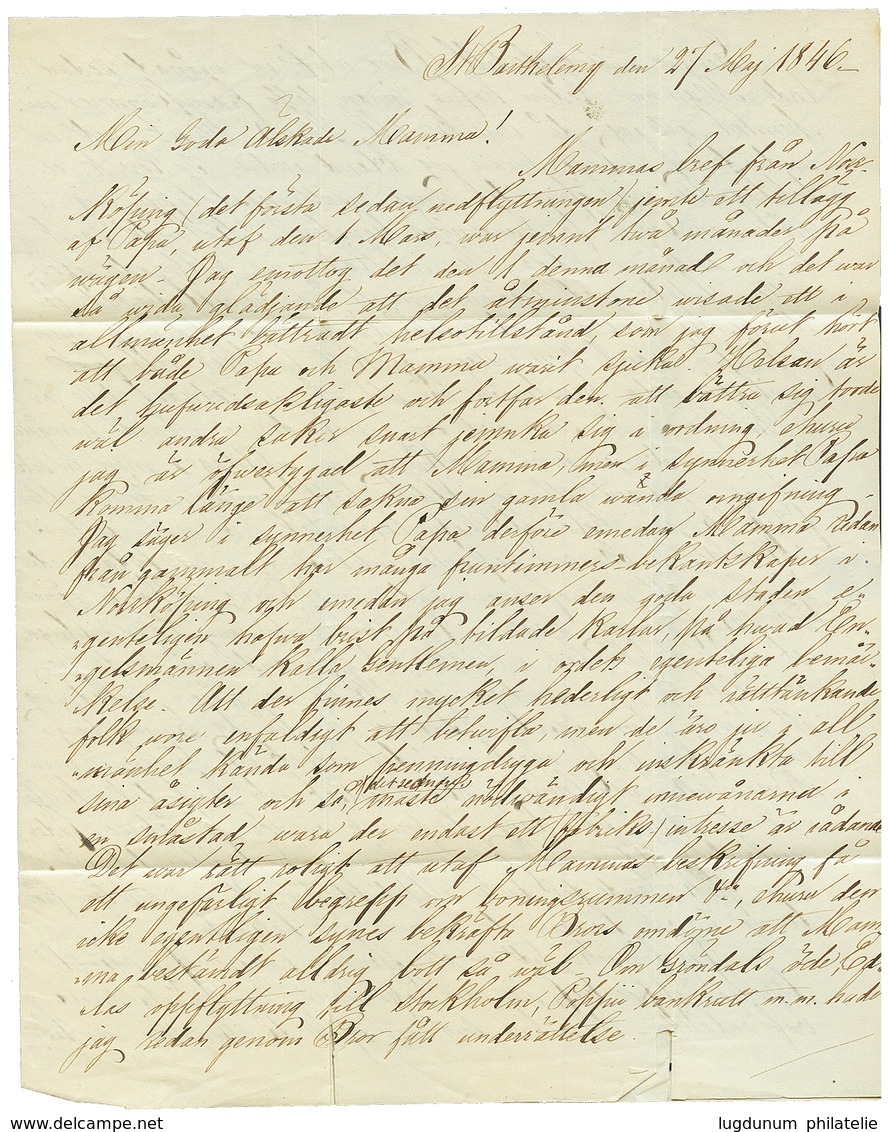 St Barthelemy den 27 Maj 1846
Min Goda Älskade Mamma!
Mammas bref från Norr-
köping (det första sedan nedflyttningen) jemte ett tillägg
af Papa, utaf den 1 Mars, war jemnt två månader på
wägen. Jag emottog det den 1 denna månad och det war
så mycket glädjande att det åtminstone wisade ett i
allmänhet bättradt helsotillstånd, som jag förut hört
att både Papa och Mamma warit sjuka. Helsan är
det hufwudsakligaste och fortfar den att bättra sig torde
wäl andra saker snart jemnka sig i ordning, ehuru
jag är öfwertygad att Mamma, men i synnerhet Papa
komma länge att sakna sin gamla wanda omgifning.
Jag säger i synnerhet Papa derföre emedan Mamma redan
från gammalt har många fruntimmers-bekantskaper i
Norrköping och emedan jag anser den goda staden e-
genteligen hafwa brist på bildade Karlar, på hwad En-
gelsmännen kalla Gentlemen, i ordets egenteliga bemär-
kelse. Att der finnes mycket hederligt och rättänkande
folk wore enfaldigt att betwifla men de äro ju i all-
mänhet kända som penningdryga och inskränkta till
sina åsigter och så måste nödwändigt innewånarne i
en småstad wara der endast ett (fabriks) intresse är rådande
Det war rätt roligt att utaf Mammas beskrifning få
ett ungefärligt begrepp om boningsrummen &c, ehuru den
icke egentligen synes bekräfta Brors omdöme att Mam-
ma beständt alldrig bott så wäl. Om Gröndals öde, Ed-
las uppflyttning till Stockholm, Poppii bankrutt m.m. hade
jag redan genom Bror fått underrättelse.
lugdunum philatelie